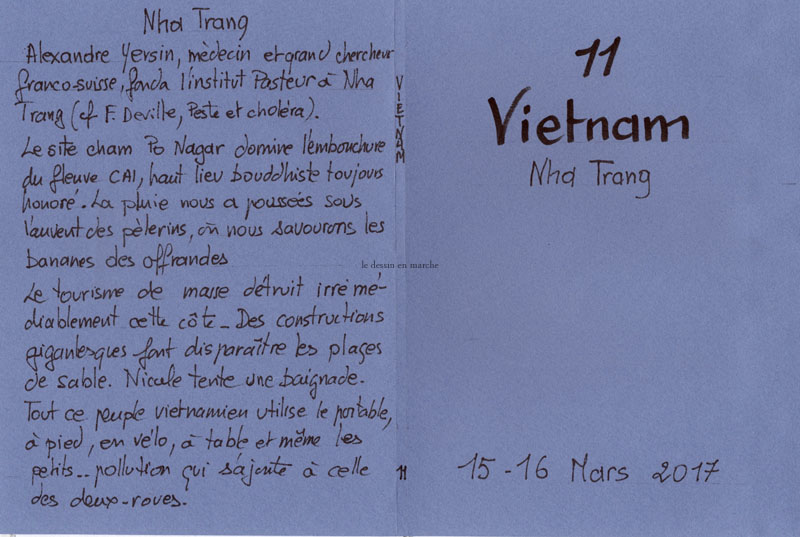 Nha Trang
Alexandre Yersin, médecin et grand chercheur
franco-suisse, fonda l'institut Pasteur à Nha
Trang (cf F. Deville, Peste et choléra).
Le site cham Po Nagar domine l'embouchure
du fleuve CAI, haut lieu bouddhiste toujours
honoré. La pluie nous a poussées sous
l'auvent des pèlerins, où nous savourons les
bananes des offrandes
Le tourisme de masse détruit irrémé-
diablement cette côte_ Des constructions
gigantesques font disparaître les plages
de sable. Nicole tente une baignade.
Tout ce peuple vietnamien utilise le portable,
à pied, en vélo, à table et même les
petits.. pollution qui s'ajoute à celle
des deux-roues.
VIETNAM
11
le dessin en marche
11
Vietnam
Nha Trang
15-16 Mars 2017